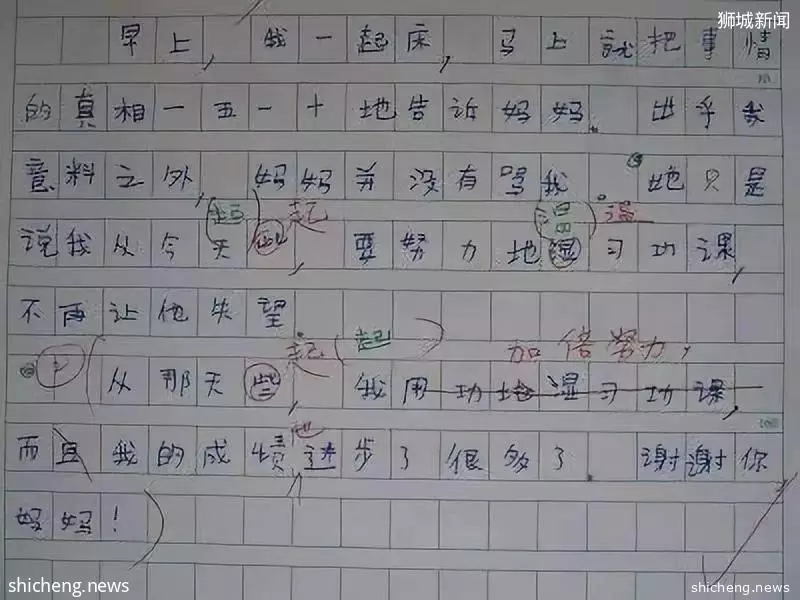 狮城新闻
早上，我一起床，马上就把事情
的真相一五一十地告诉妈妈。出乎我
意料之外，妈妈并没有骂我。她只是
起 起 温 温
说我从今天，要努力地湿习功课，
不再让他失望。
起 起 加倍努力，
从那天些，我用功地湿习功课，
也
而且我的成绩进步了很多了。谢谢你
妈妈！
shicheng.news
shicheng.news